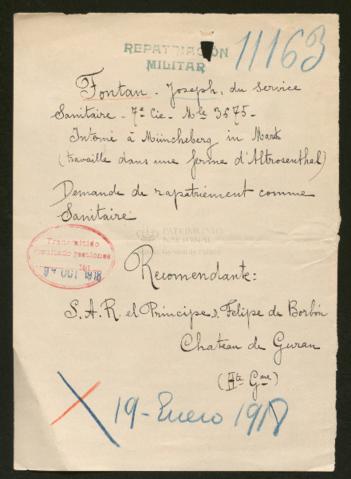 REPATRIACIÓN
MILITAR
11163
Fontan - Joseph, du service
Sanitaire - 7e Cie - Mle 3675 -
Interné à Müncheberg in Mark
(travaille dans une ferme d'Altrosenthal)
Demande de rapatriement comme
Sanitaire
PATRIMONIO
NACIONAL
Transmitido
resultado gestiones
OCT 1918
Recomendante:
S.A.R. el Principe D. Felipe de Borbón
Chateau de Guran
(Hte Gne)
19 - Enero 1918